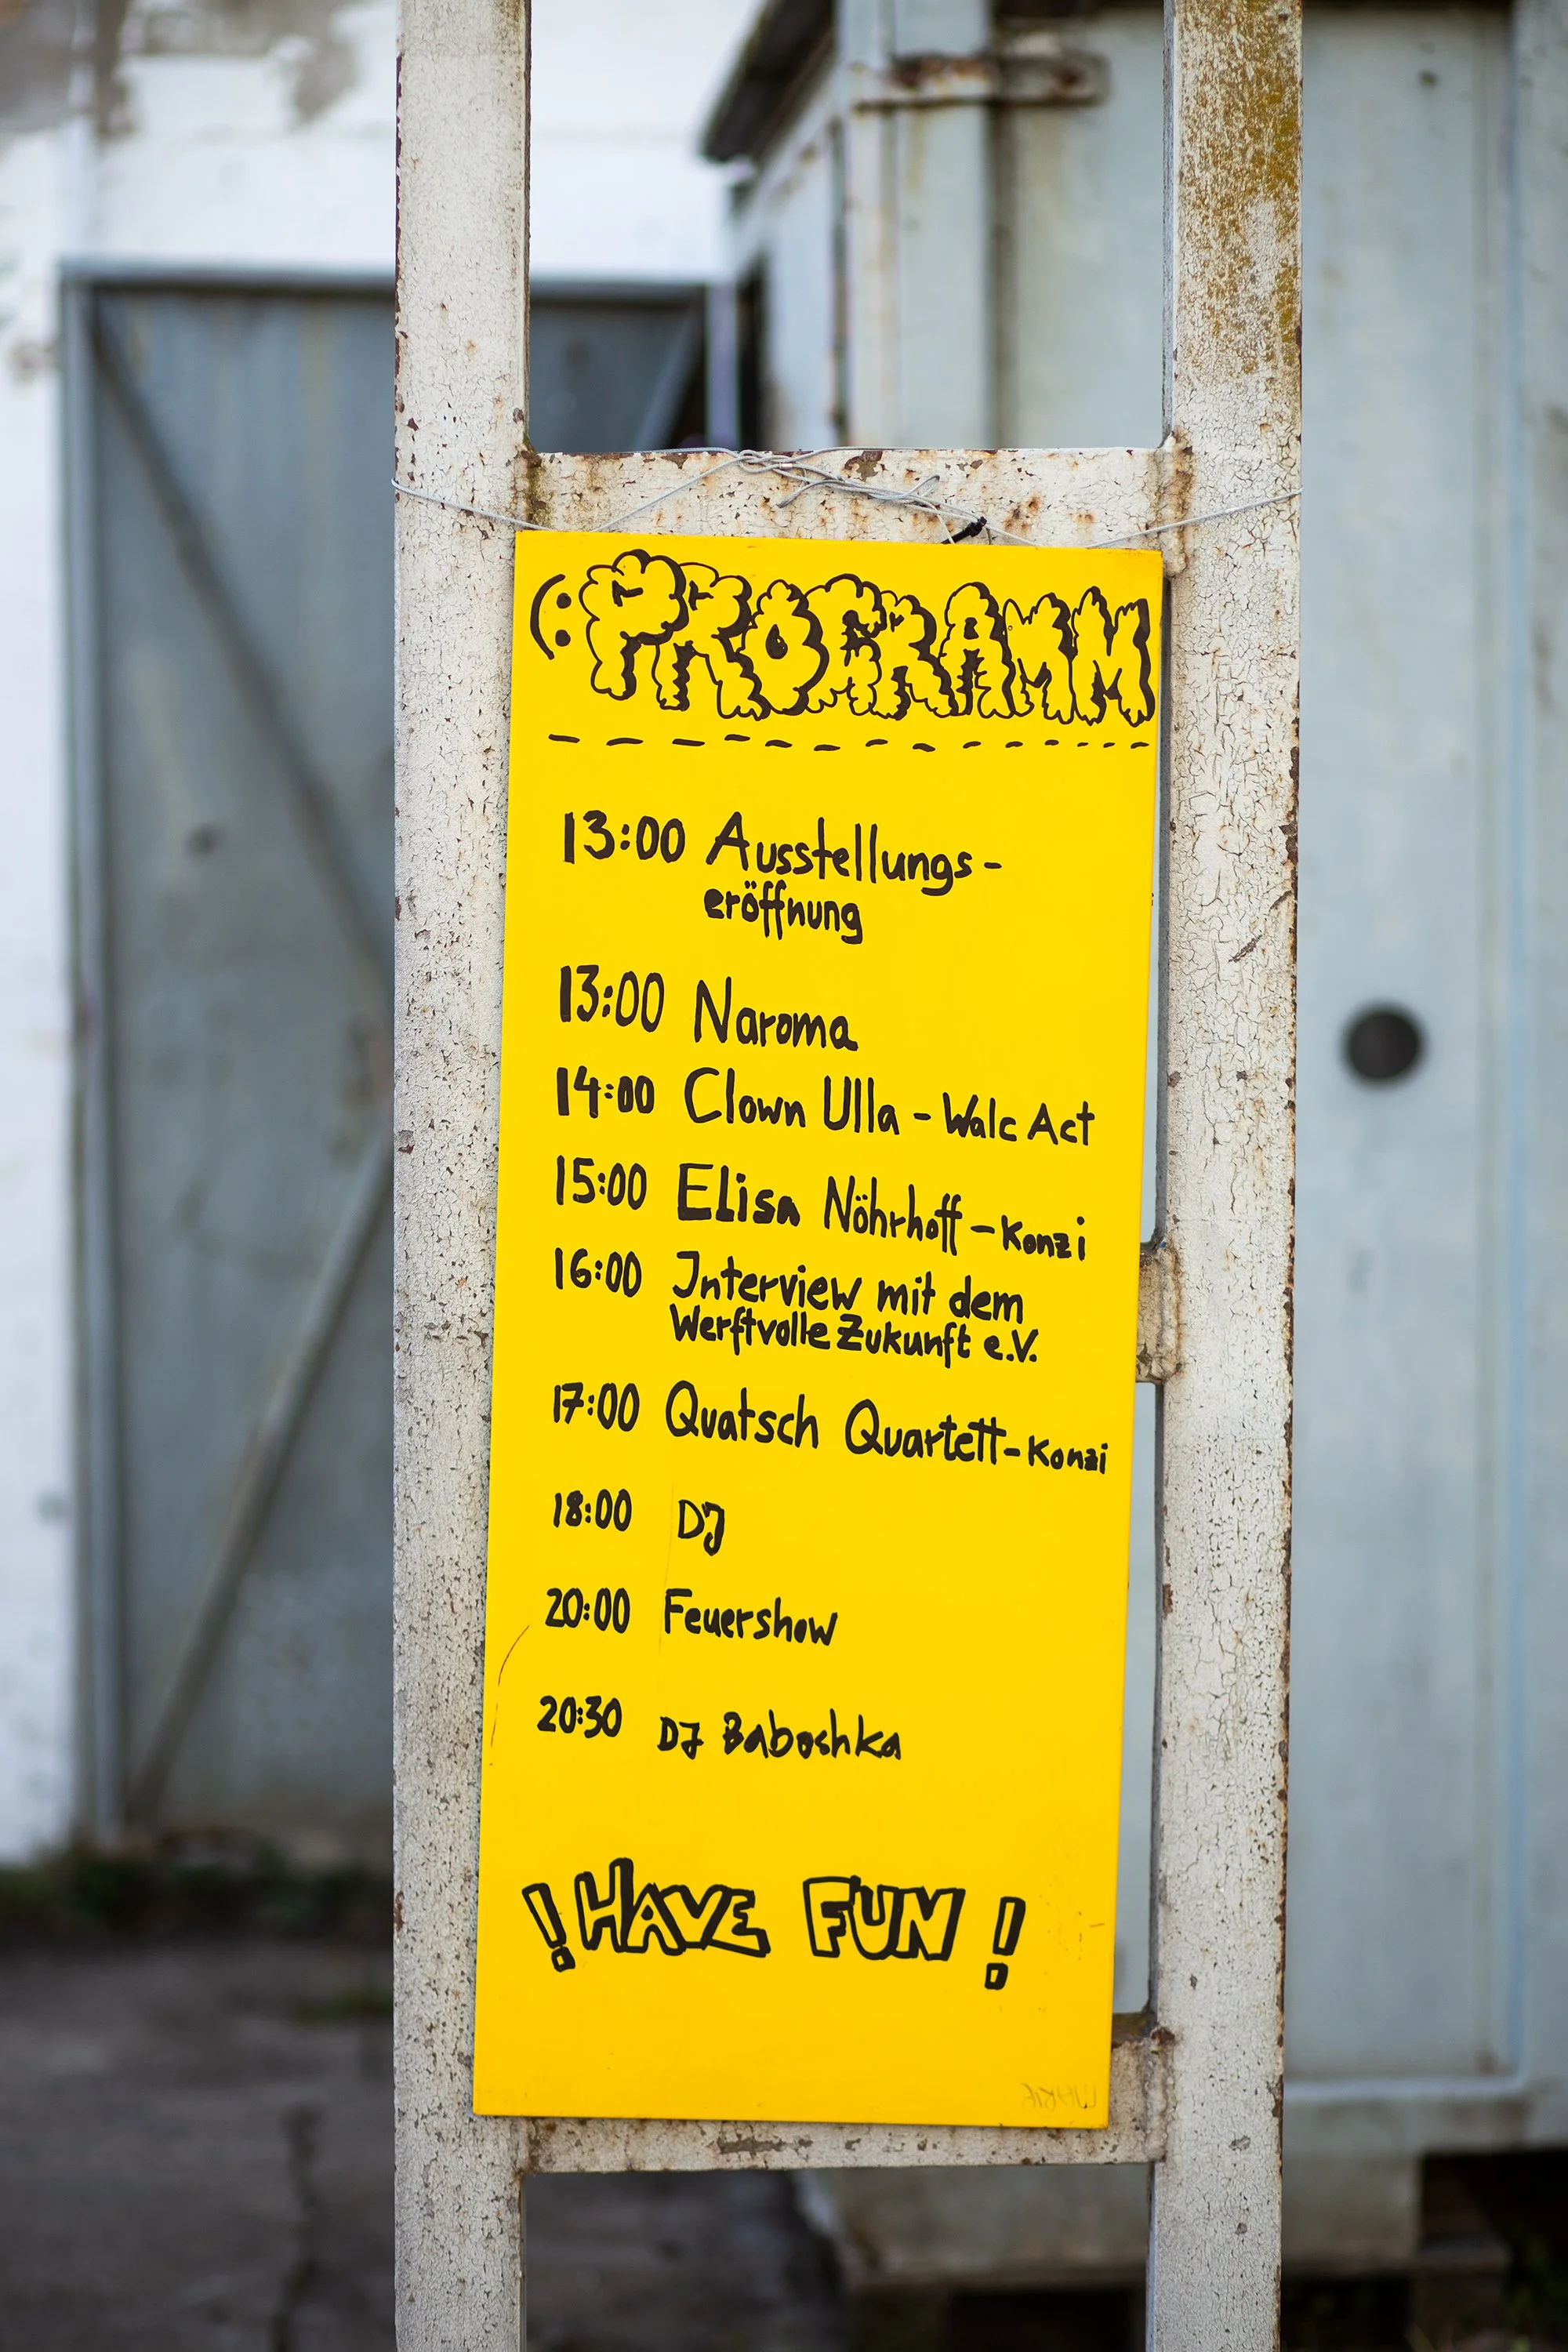 (: PROGRAMM
13:00 Ausstellungs-
eröffnung
13:00 Naroma
14:00 Clown Ulla - Walc Act
15:00 Elisa Nöhrhoff - Konzi
16:00 Interview mit dem
Werftvolle Zukunft e.V.
17:00 Quatsch Quartett - Konzi
18:00 DJ
20:00 Feuershow
20:30 DJ Baboshka
! HAVE FUN !